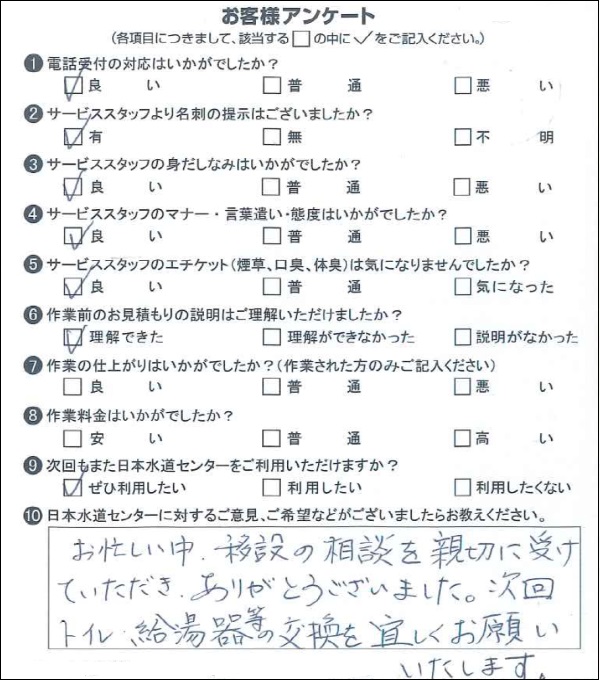 お客様アンケート
(各項目につきまして、該当する□の中に✓をご記入ください。)
❶ 電話受付の対応はいかがでしたか?
☑良い □普通 □悪い
❷ サービススタッフより名刺の提示はございましたか?
☑有 □無 □不明
❸ サービススタッフの身だしなみはいかがでしたか?
☑良い □普通 □悪い
❹ サービススタッフのマナー・言葉遣い・態度はいかがでしたか?
☑良い □普通 □悪い
❺ サービススタッフのエチケット(煙草、口臭、体臭)は気になりませんでしたか?
☑良い □普通 □気になった
❻ 作業前のお見積もりの説明はご理解いただけましたか?
☑理解できた □理解ができなかった □説明がなかった
❼ 作業の仕上がりはいかがでしたか?(作業された方のみご記入ください)
□良い □普通 □悪い
❽ 作業料金はいかがでしたか?
□安い □普通 □高い
❾ 次回もまた日本水道センターをご利用いただけますか?
☑ぜひ利用したい □利用したい □利用したくない
❿ 日本水道センターに対するご意見、ご希望などがございましたらお教えください。
お忙しい中、移設の相談を親切に受け
ていただき、ありがとうございました。次回
トイレ、給湯器等の交換を宜しくお願い
いたします。